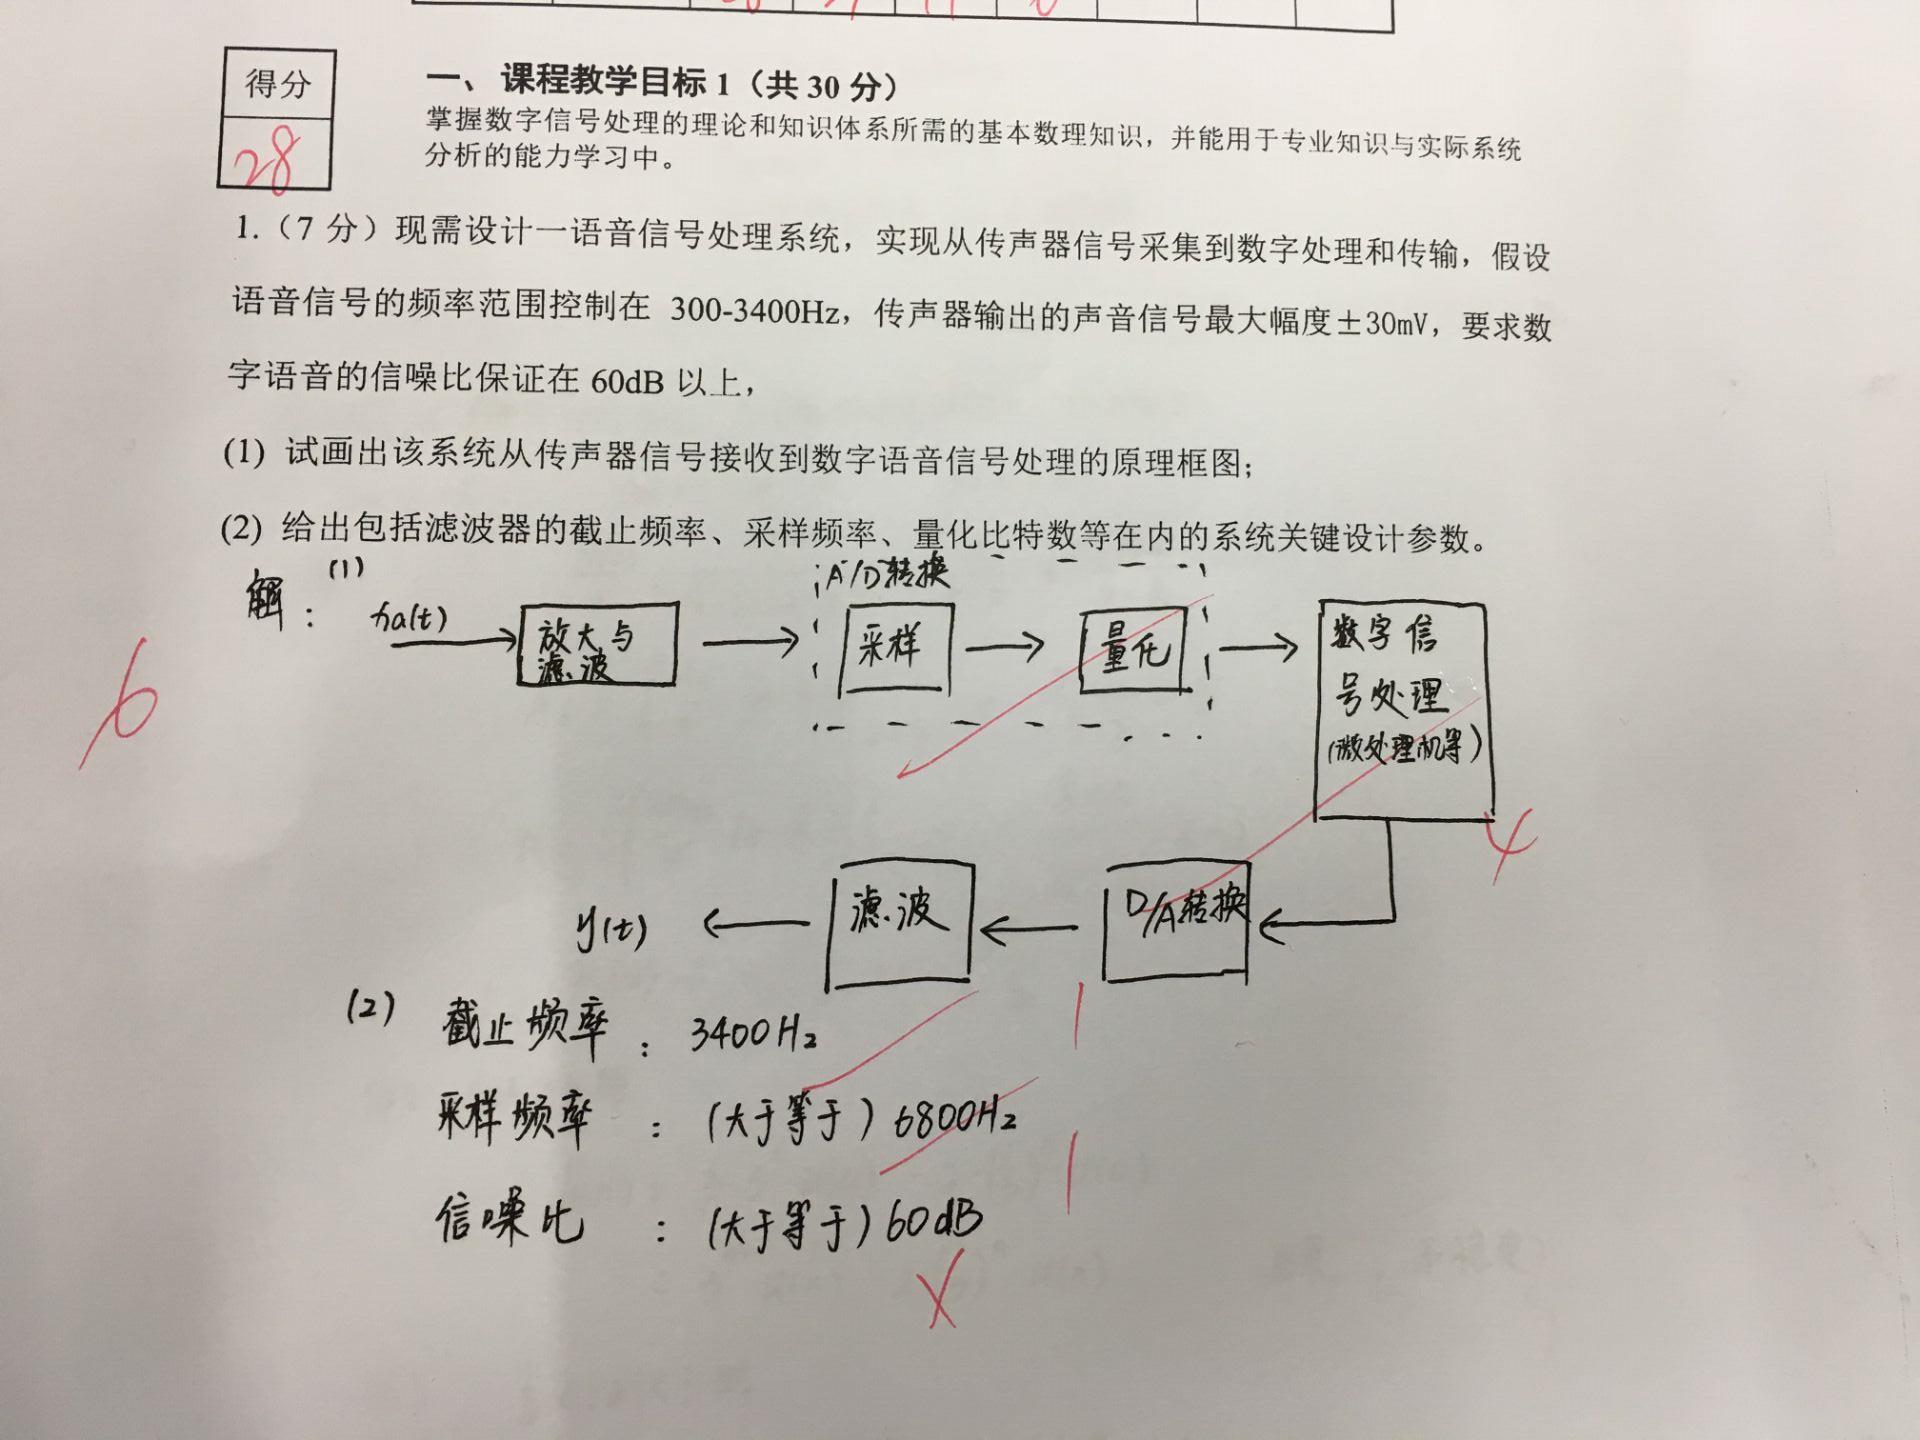 得分
28
一、课程教学目标 1（共 30 分）
掌握数字信号处理的理论和知识体系所需的基本数理知识，并能用于专业知识与实际系统
分析的能力学习中。
1.（7 分）现需设计一语音信号处理系统，实现从传声器信号采集到数字处理和传输，假设
语音信号的频率范围控制在 300-3400Hz，传声器输出的声音信号最大幅度±30mV，要求数
字语音的信噪比保证在 60dB 以上，
(1) 试画出该系统从传声器信号接收到数字语音信号处理的原理框图；
(2) 给出包括滤波器的截止频率、采样频率、量化比特数等在内的系统关键设计参数。
解： (1)
A/D转换
xa(t)
放大与
滤波
采样
量化
数字信
号处理
(微处理机等)
6
4
D/A转换
滤波
y(t)
(2) 截止频率 ： 3400Hz
1
采样频率 ： (大于等于) 6800Hz
1
信噪比 ： (大于等于) 60dB